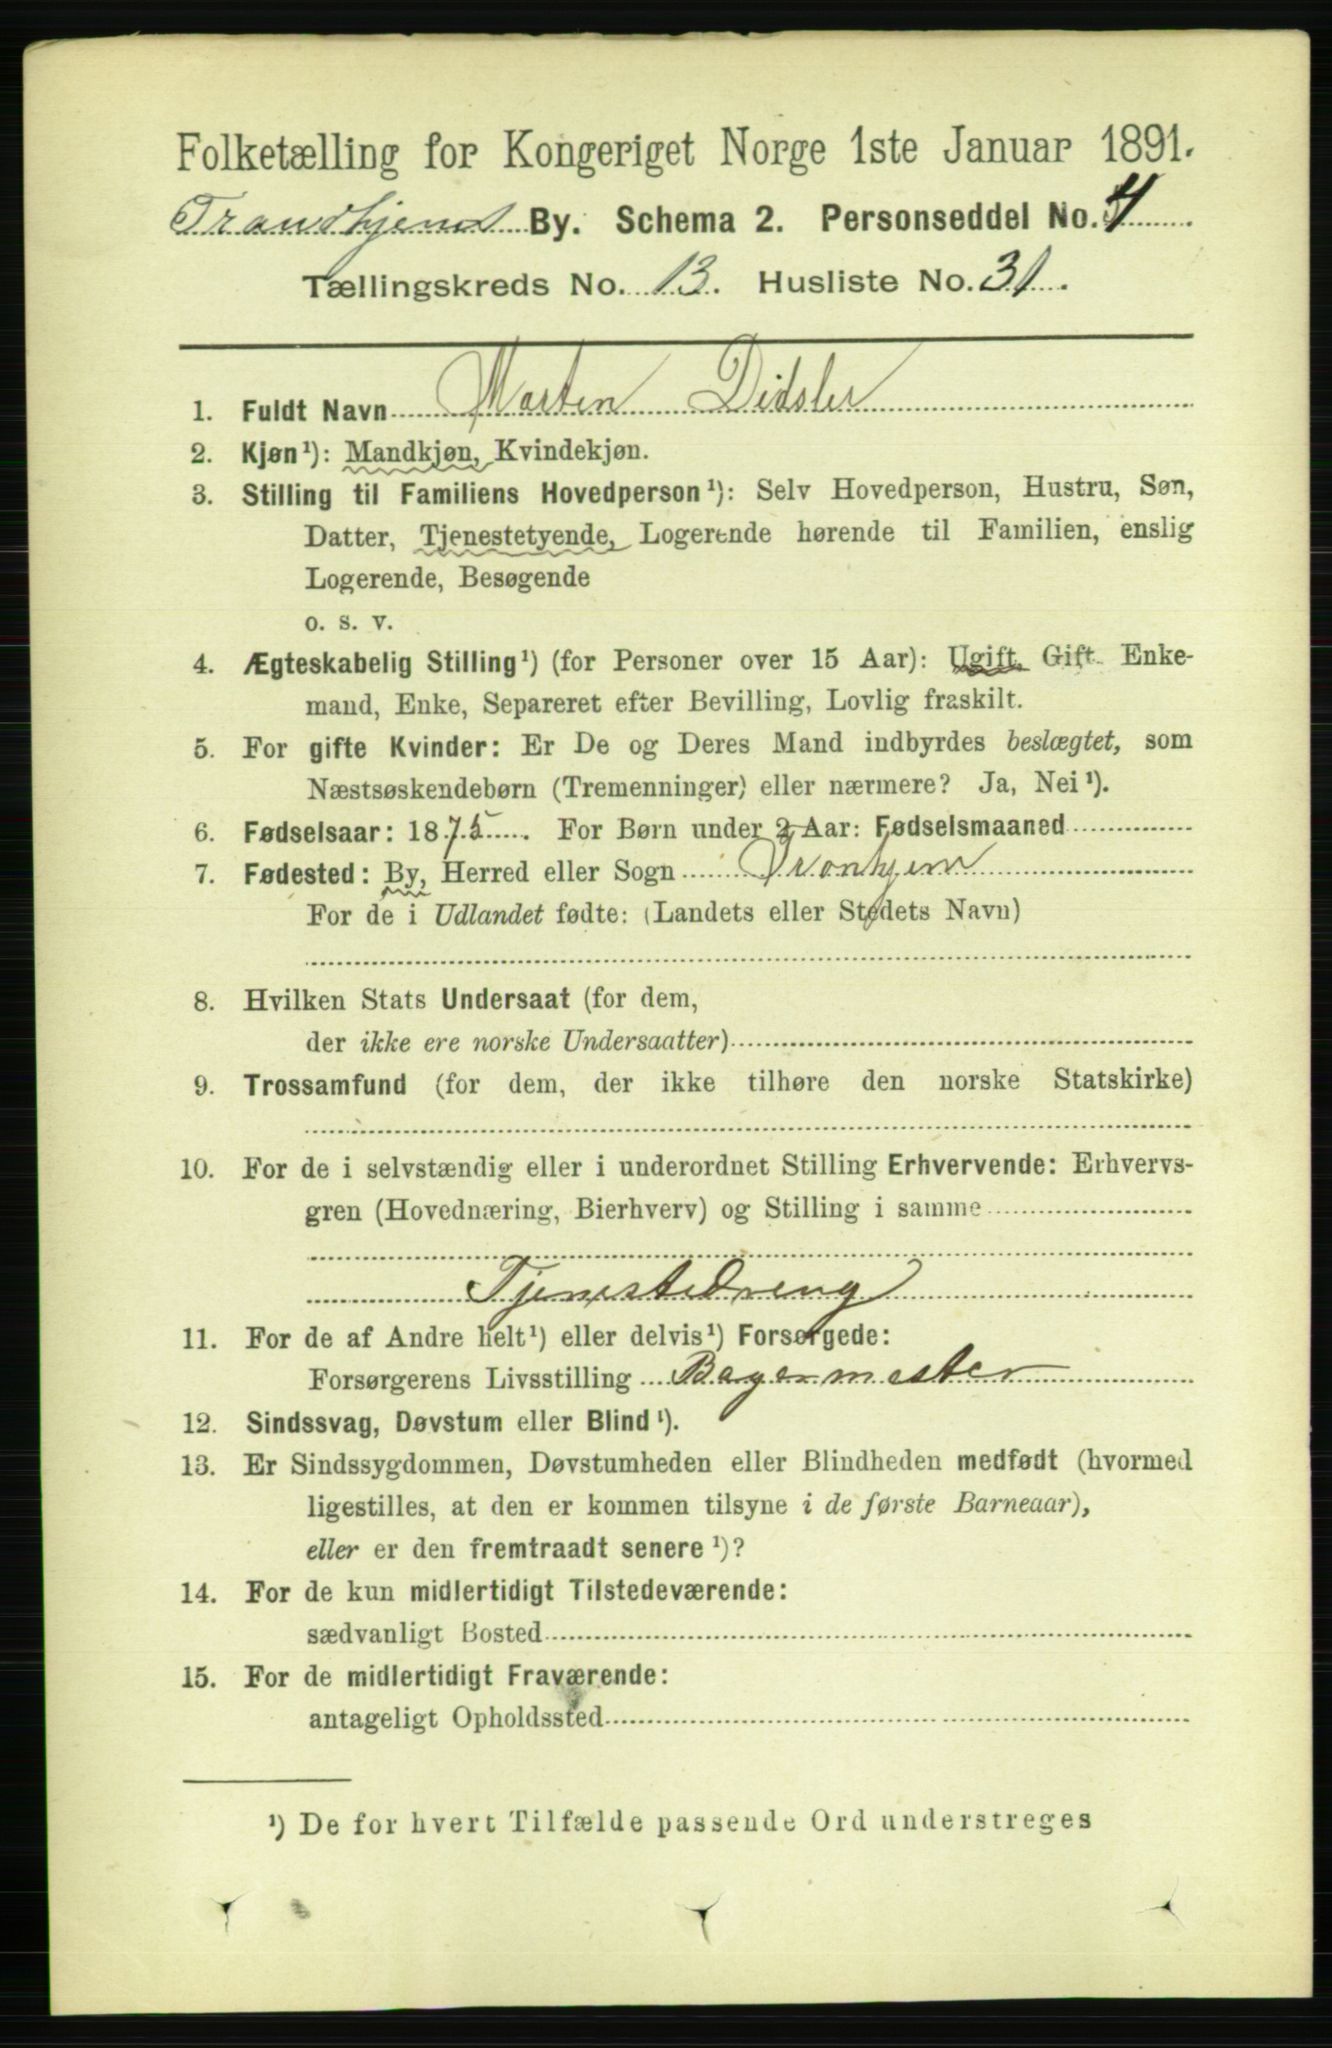 Folketælling for Kongeriget Norge 1ste Januar 1891.
Trondhjems By. Schema 2. Personseddel No. 4
Tællingskreds No. 13. Husliste No. 31.
1. Fuldt Navn Marten Didsler
2. Kjøn¹): Mandkjøn, Kvindekjøn.
3. Stilling til Familiens Hovedperson¹): Selv Hovedperson, Hustru, Søn,
Datter, Tjenestetyende, Logerende hørende til Familien, enslig
Logerende, Besøgende
o. s. v.
4. Ægteskabelig Stilling¹) (for Personer over 15 Aar): Ugift, Gift. Enke-
mand, Enke, Separeret efter Bevilling, Lovlig fraskilt.
5. For gifte Kvinder: Er De og Deres Mand indbyrdes beslægtet, som
Næstsøskendebørn (Tremenninger) eller nærmere? Ja, Nei¹).
6. Fødselsaar: 1875. For Børn under 2 Aar: Fødselsmaaned
7. Fødested: By, Herred eller Sogn Tronhjem
For de i Udlandet fødte: (Landets eller Stedets Navn)
8. Hvilken Stats Undersaat (for dem,
der ikke ere norske Undersaatter)
9. Trossamfund (for dem, der ikke tilhøre den norske Statskirke)
10. For de i selvstændig eller i underordnet Stilling Erhvervende: Erhvervs-
gren (Hovednæring, Bierhverv) og Stilling i samme
Tjenestedreng
11. For de af Andre helt¹) eller delvis¹) Forsørgede:
Forsørgerens Livsstilling Bagermester
12. Sindssvag, Døvstum eller Blind¹).
13. Er Sindssygdommen, Døvstumheden eller Blindheden medfødt (hvormed
ligestilles, at den er kommen tilsyne i de første Barneaar),
eller er den fremtraadt senere¹)?
14. For de kun midlertidigt Tilstedeværende:
sædvanligt Bosted
15. For de midlertidigt Fraværende:
antageligt Opholdssted
¹) De for hvert Tilfælde passende Ord understreges